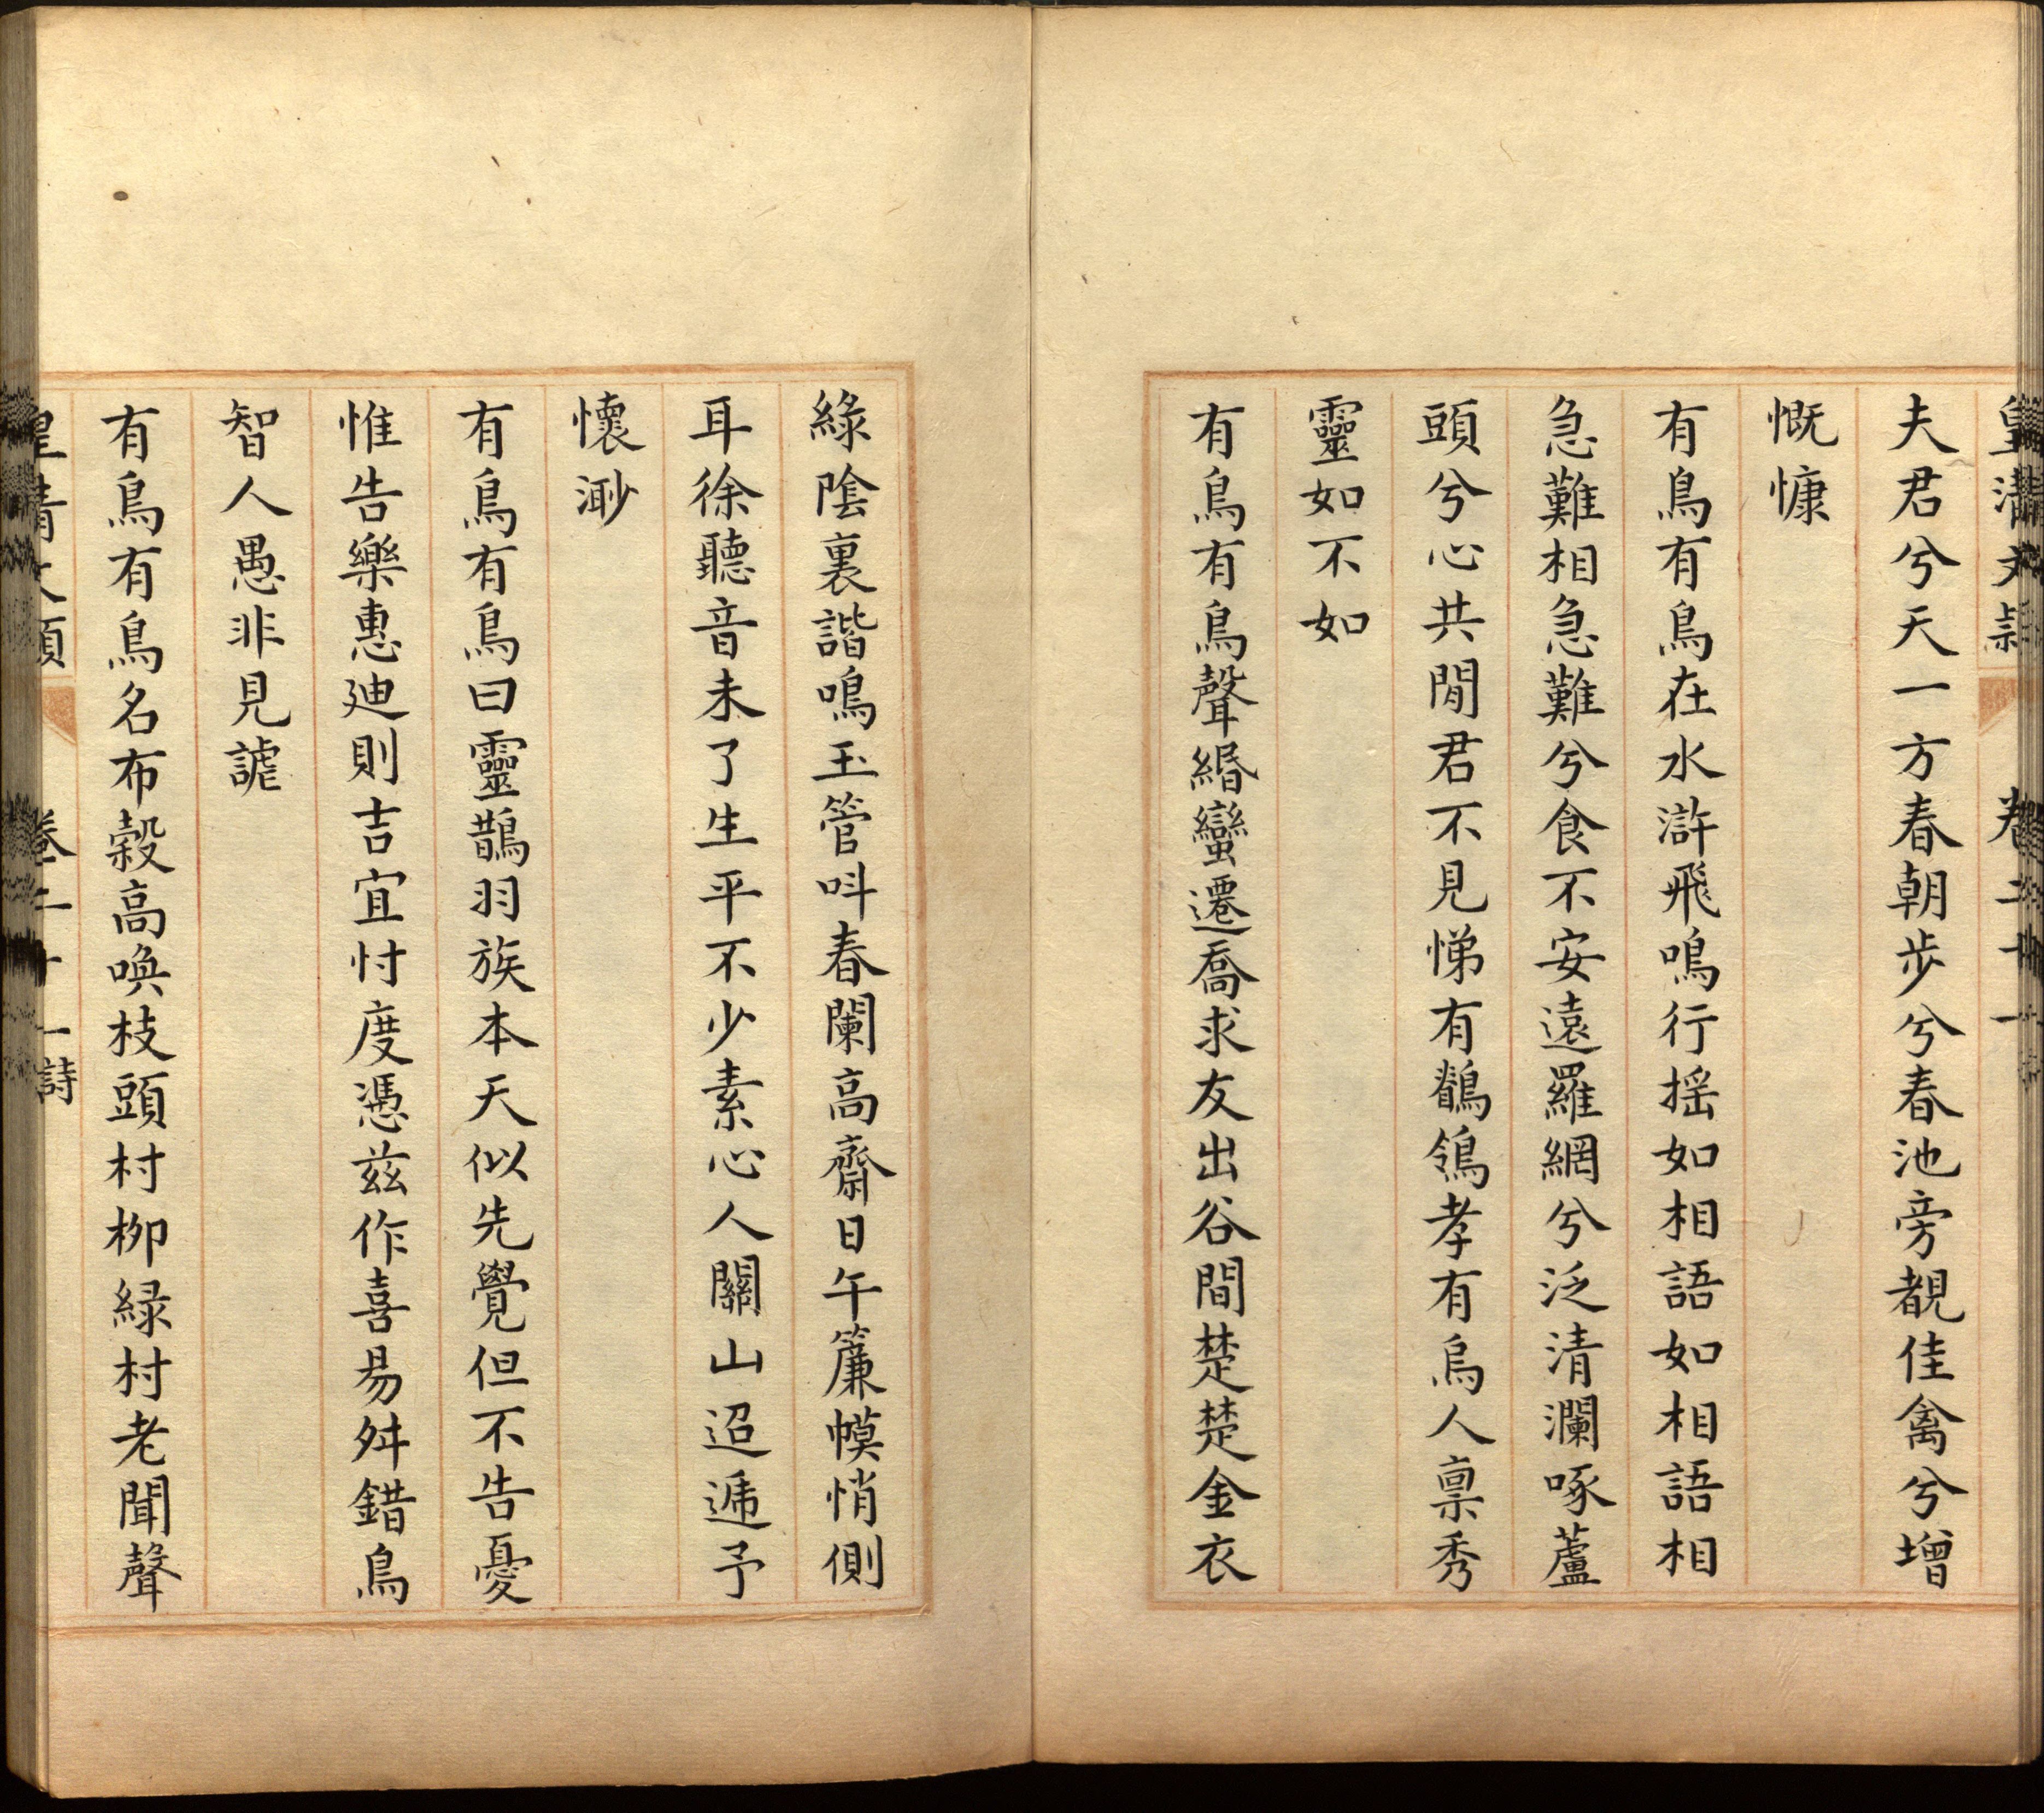 皇清文潁 卷二十一
夫君兮天一方春朝步兮春池旁覩佳禽兮增
慨慷
有鳥有鳥在水滸飛鳴行揺如相語如相語相
急難相急難兮食不安遠羅網兮泛清瀾啄蘆
頭兮心共閒君不見悌有鶺鴒孝有烏人禀秀
靈如不如
有鳥有鳥聲緡蠻遷喬求友出谷間楚楚金衣
綠陰裏諧鳴玉管呌春闌高齋日午簾幙悄側
耳徐聽音未了生平不少素心人關山迢遞予
懷渺
有鳥有鳥曰靈鵲羽族本天似先覺但不告憂
惟告樂惠廸則吉宜忖度憑兹作喜易舛錯鳥
智人愚非見謔
有鳥有鳥名布榖高喚枝頭村栁緑村老聞聲
皇清文潁 卷二十一詩